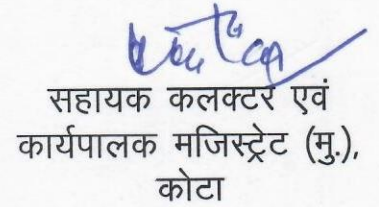 सहायक कलक्टर एवं
कार्यपालक मजिस्ट्रेट (मु.),
कोटा